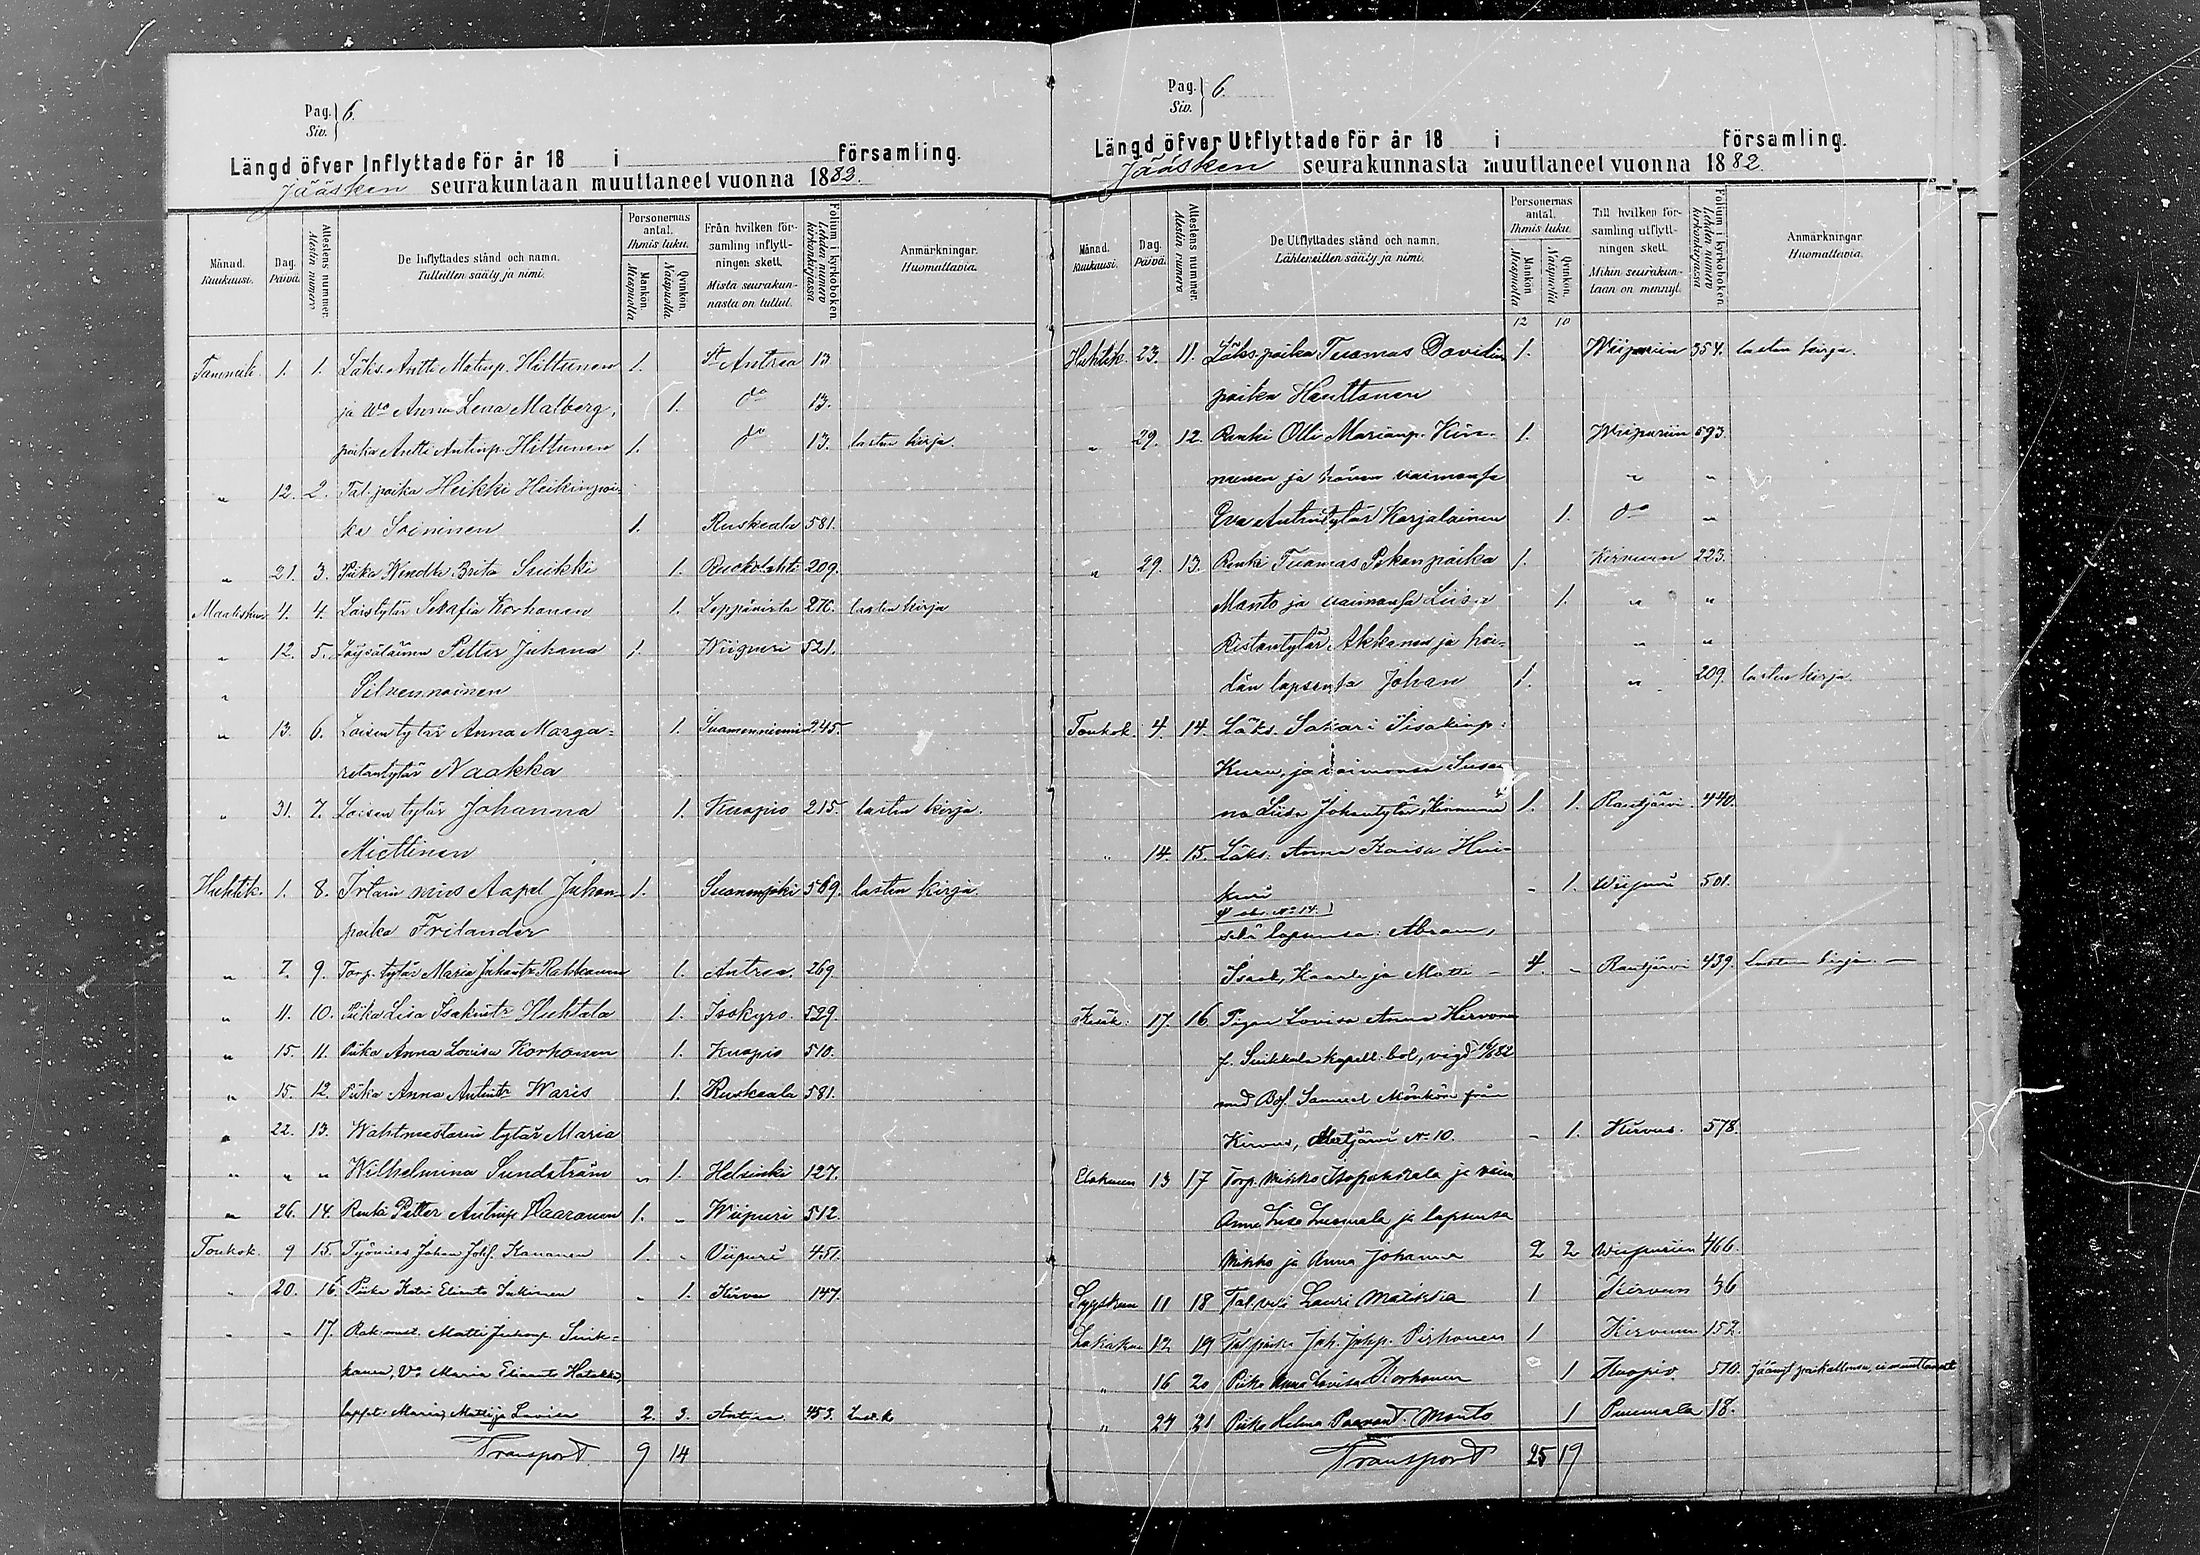 Pag. 6.
Siv.
Längd öfver Inflyttade för år 18 i församling.
Jääsken seurakuntaan muuttaneet vuonna 1883.
Månad. Kuukausi.
Dag. Päivä.
Attestens nummer. Alestin numero
De Inflyttades stånd och namn. Tulleitten sääty ja nimi.
Personernas antal. Ihmis luku.
Mankön. Miespuolia
Qvinkön. Naispuolia.
Från hvilken församling inflyttningen skett. Mistä seurakunnasta on tullut.
Folium i kyrkoboken. Lehden numero kirkonkirjassa
Anmärkningar. Huomattavia.
Tammik. 1. 1. Läks. Antti Matinp. Hiltunen 1. St Antrea 13
ja Wo Anna Lena Malberg, 1. do 13.
poika Antti Antinp. Hiltunen 1. do 13. lasten kirja.
" 12. 2. Tal. poika Heikki Heikinpoi-
ka Soininen 1. Ruskeala 581.
" 21. 3. Piika Wendla Brita Suikki 1. Ruokolahti 209.
Maalisku. 4. 4. Loistytär Serafia Korhonen 1. Leppävirta 276. lasten kirja
" 12. 5. Petter Juhana 1. Wiipuri 521.
" Silvennoinen
" 13. 6. Loisen tytär Anna Marga- 1. Suomenniemi 245.
retantytär Naakka
" 31. 7. Loisen tytär Johanna 1. Kuopio 215. lasten kirja.
Miettinen
Huhtik. 1. 8. Irtain mies Aapel Juhan- 1. Suonenjoki 569. lasten kirja.
poika Frilander
" 7. 9. Torp. tytär Maria Juhantr Rahkonen 1. Antrea. 269.
" 11. 10. Piika Lisa Isakintr Huhtala 1. Isokyro. 529.
" 15. 11. Piika Anna Lovisa Korhonen 1. Kuopio 510.
" 15. 12. Piika Anna Antintr Waris 1. Ruskeala 581.
" 22. 13. Wahtmestarin tytär Maria
" " " Wilhelmina Sundström " 1. Helsinki 127.
" 26. 14. Renki Petter Antinp. Vaaranen 1. " Wiipuri 512.
Toukok. 9 15. Työmies Johan Joh. Kananen 1. " Viipuri 451.
" 20. 16. Piika Katri Eliaantr Inkinen " 1. Kirvu 147.
" " 17. Rak. mest. Matti Juhonp. Sink-
konen, Vo Maria Eliaantr Hatakka,
lapset Maria, Matti ja Lovisa 2. 3. Antrea. 453. Last. k
Transport 9 14
Pag. 6.
Siv.
Längd öfver Utflyttade för år 18 i församling.
Jääsken seurakunnasta muuttaneet vuonna 1882.
Månad. Kuukausi.
Dag. Päivä.
Attestens nummer. Alestin numero
De Utflyttades stånd och namn. Lähteneitten sääty ja nimi.
Personernas antal. Ihmis luku.
Mankön. Miespuolia
Qvinkön. Naispuolia
Till hvilken församling utflyttningen skett. Mihin seurakuntaan on mennyt.
Folium i kyrkoboken. Lehden numero kirkonkirjassa
Anmärkningar. Huomattavia.
12 10
Huhtik. 23. 11. Läks. poika Tuomas Davidin 1. Wiipuriin 354. lasten kirja.
poika Hanttonen
" 29. 12. Renki Olli Marianp. Kin- 1. Wiipuriin 593.
nunen ja hänen vaimonsa " "
Eva Antintytär Karjalainen 1. do "
" 29. 13. Renki Tuomas Pekanpoika 1. Kirvuun 223.
Manto ja vaimonsa Liisa 1. " "
Ristontytär Akkanen ja hei- " "
dän lapsensa Johan 1. " 209. lasten kirja.
Toukok. 4. 14. Läks. Sakari Iisakinp:
Kuru, ja vaimonsa Susan
na Liisa Johantytär Kinnunen 1. 1. Rautjärvi 440.
" 14. 15. Läks. Anna Kaisa Hui-
kuri - 1. Wiipuri 501.
No 14.
sekä lapsensa: Abram,
Isack, Kaarle ja Matti - 4. - Rautjärvi 439. Lasten kirja. -
Kesäk. 17. 16. Pigan Lovisa Anna Hirvonen
f. Suikkala kapell. bol, vigd 16/6 82
med Bds. Samuel Mönkön från
Kirvus, No 10. - 1. Kirvus. 578.
Elokuun 13 17 Torp. Mikko Isopahkala ja vaim
Anna Lisa Luumala ja lapsensa
Mikko ja Anna Johanna 2 2 Wiipuriin 466.
Syyskuu 11 18 Tal. veli Lauri Matikka 1 Kirvuun 36
Lokakuu 12 19 Tal poika Joh. Johp. Pirhonen 1 Kirvuun 152.
" 16 20 Piika Anna Lovisa Korhonen 1 Kuopio. 510. Jäänyt paikallensa, ei muuttanut
" 24 21 Piika Helena Paavont. Manto 1 Puumala 18.
Transport 25 19